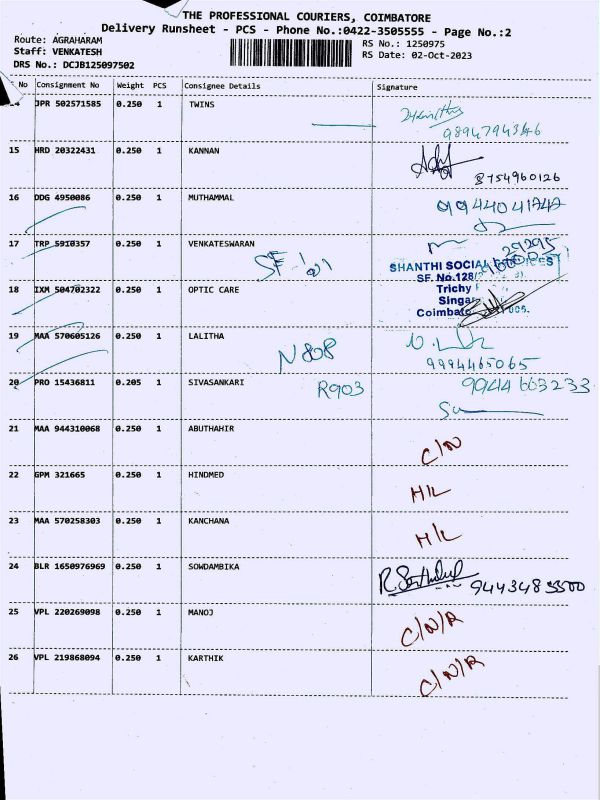 THE PROFESSIONAL COURIERS, COIMBATORE
Delivery Runsheet - PCS - Phone No.:0422-3505555 - Page No.:2
Route: AGRAHARAM
Staff: VENKATESH
DRS No.: DCJB125097502
RS No.: 1250975
RS Date: 02-Oct-2023
No Consignment No Weight PCS Consignee Details Signature
JPR 502571585 0.250 1 TWINS
9894794346
15 HRD 20322431 0.250 1 KANNAN
8754960126
16 DDG 4950086 0.250 1 MUTHAMMAL
17 TRP 5910357 0.250 1 VENKATESWARAN
29295
SHANTHI SOCIAL
SF. No.128/
Trichy
Singa
Coimbato 005.
18 IXM 504702322 0.250 1 OPTIC CARE
19 MAA 570605126 0.250 1 LALITHA
N 808
9994465065
20 PRO 15436811 0.205 1 SIVASANKARI
R903
9944603233
21 MAA 944310068 0.250 1 ABUTHAHIR
C/N
22 GPM 321665 0.250 1 HINDMED
H/L
23 MAA 570258303 0.250 1 KANCHANA
H/L
24 BLR 1650976969 0.250 1 SOWDAMBIKA
25 VPL 220269098 0.250 1 MANOJ
C/N/R
26 VPL 219868094 0.250 1 KARTHIK
C/N/R